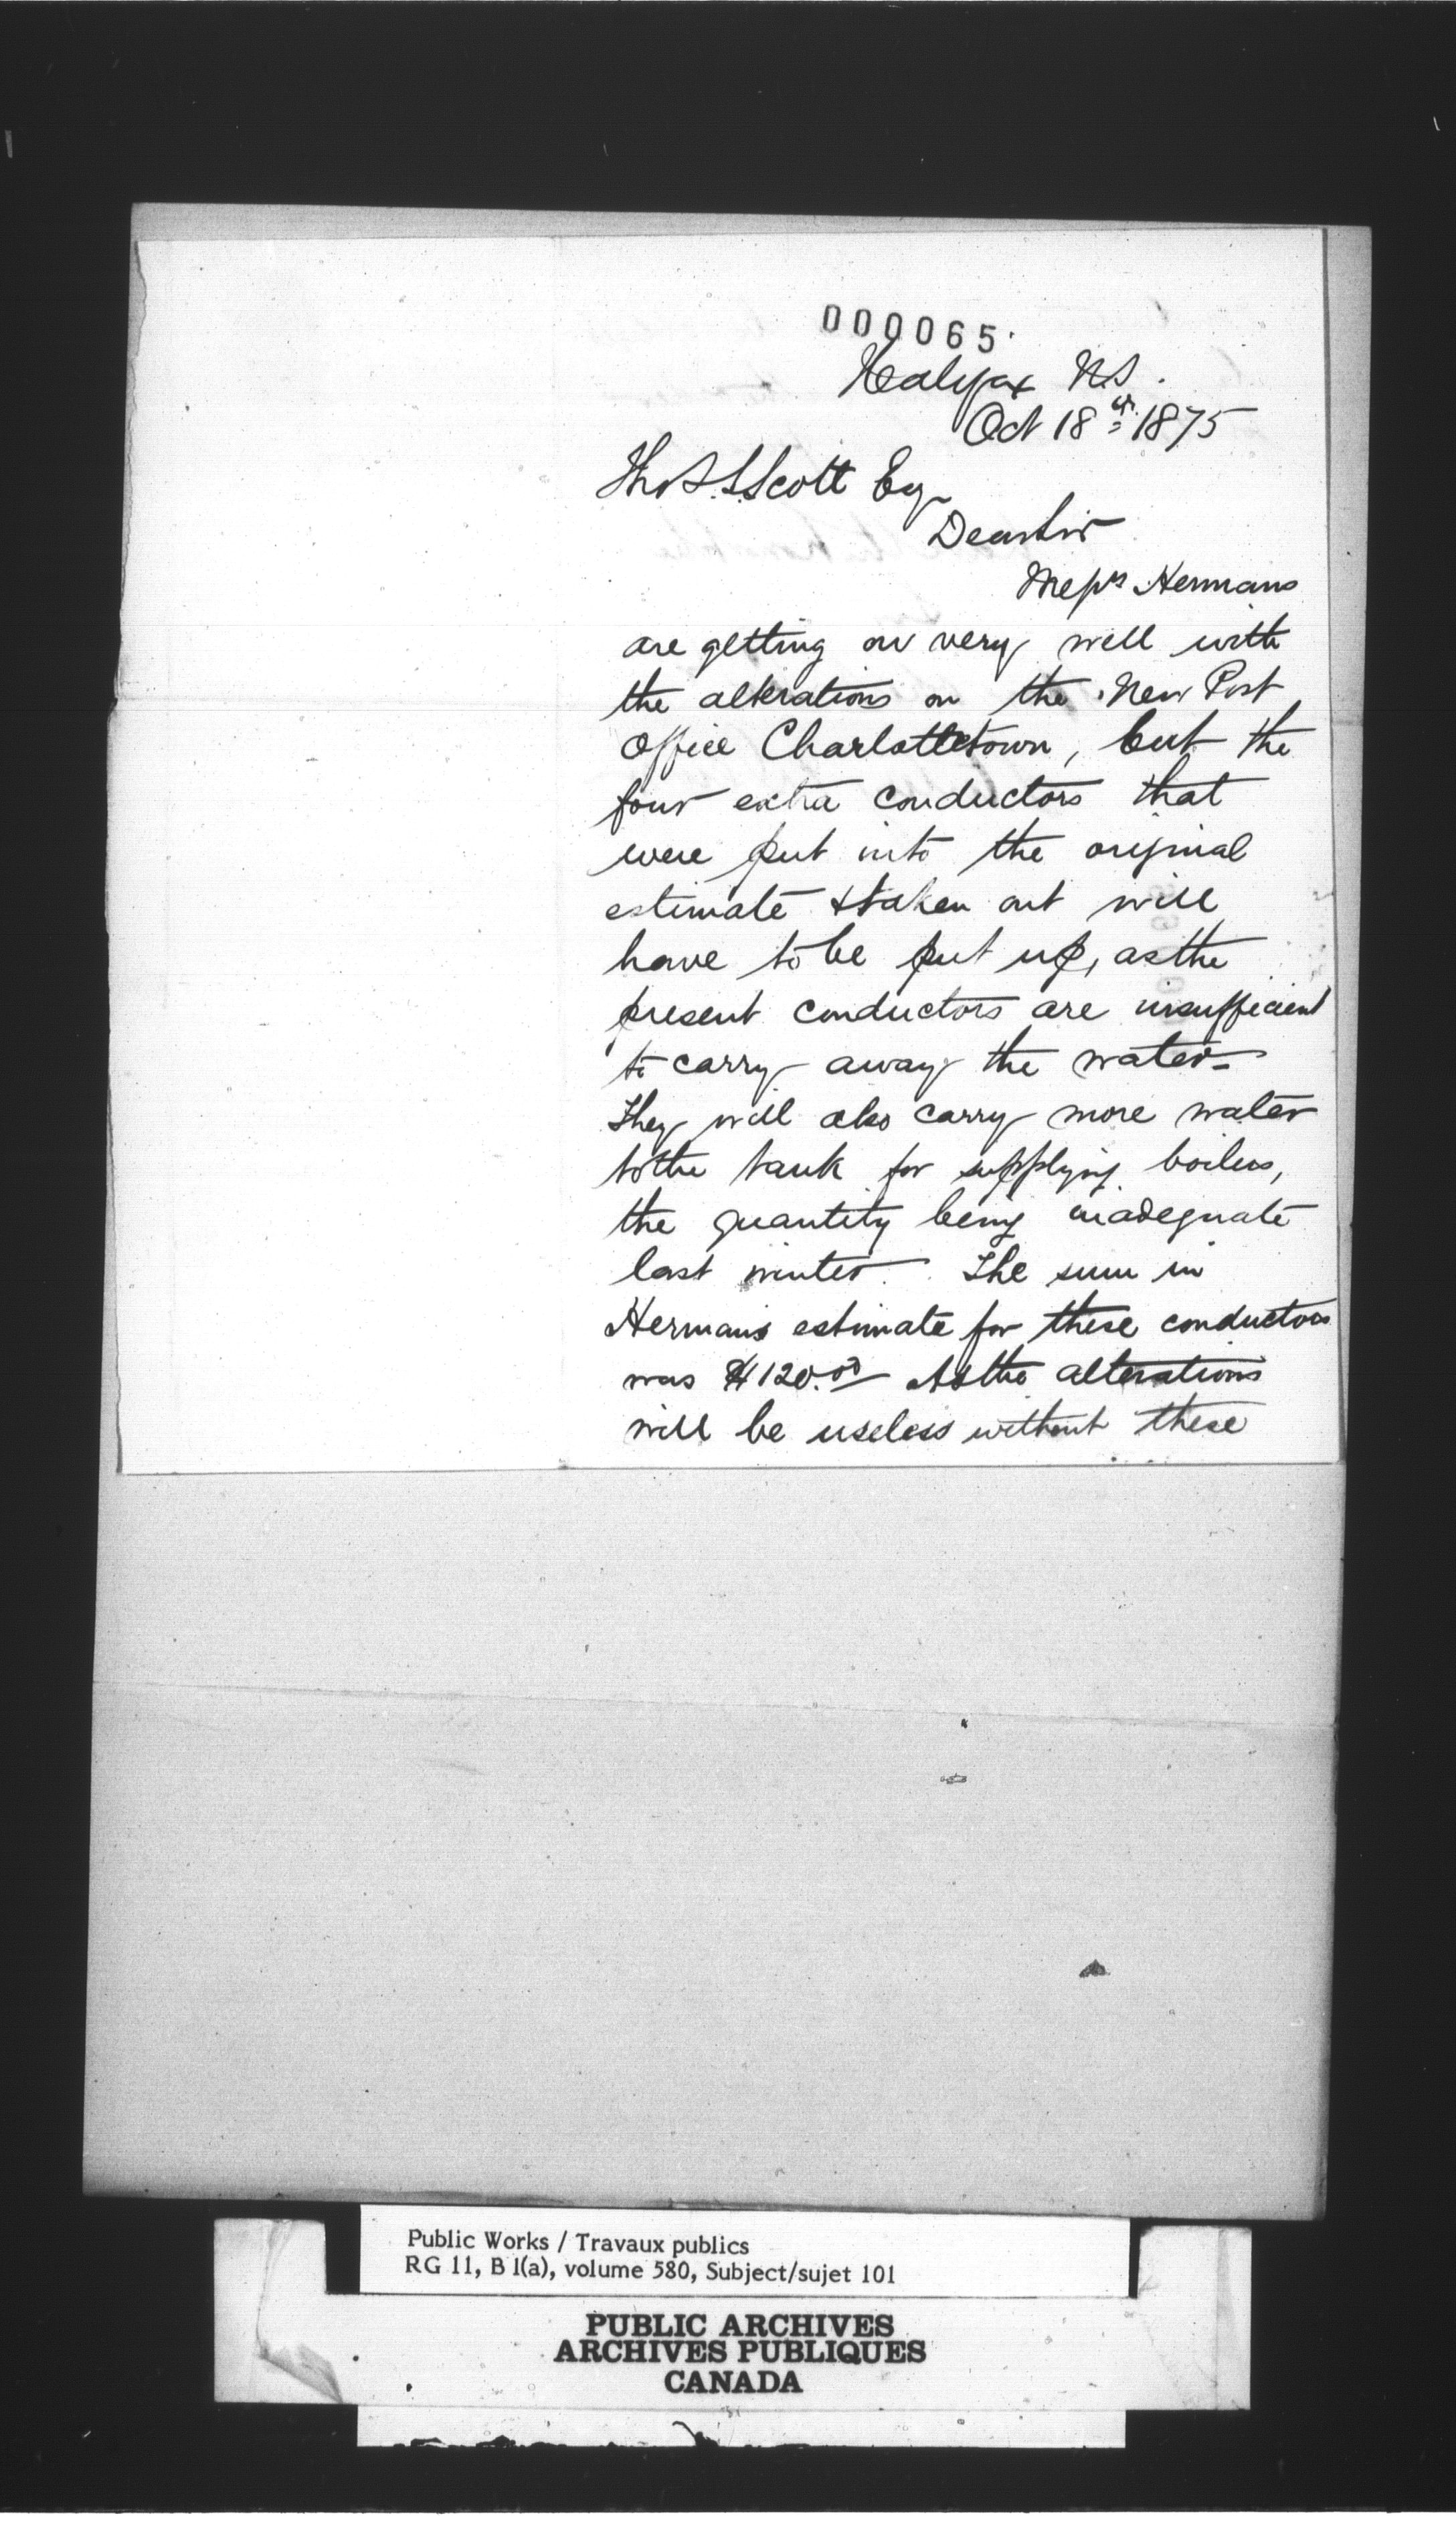 000065
Halifax N.S.
Oct 18th 1875
Thos. S. Scott Esq
Dear Sir
Messrs Hermans
are getting on very well with
the alterations on the New Post
Office Charlottetown, but the
four extra conductors that
were put into the original
estimate & taken out will
have to be put up, as the
present conductors are insufficient
to carry away the water–
They will also carry more water
to the tank for supplying boilers,
the quantity being inadequate
last winter. The sum in
Hermans estimate for these conductors
was $120.00 As the alterations
will be useless without these
Public Works / Travaux publics
RG 11, B 1(a), volume 580, Subject/sujet 101
PUBLIC ARCHIVES
ARCHIVES PUBLIQUES
CANADA